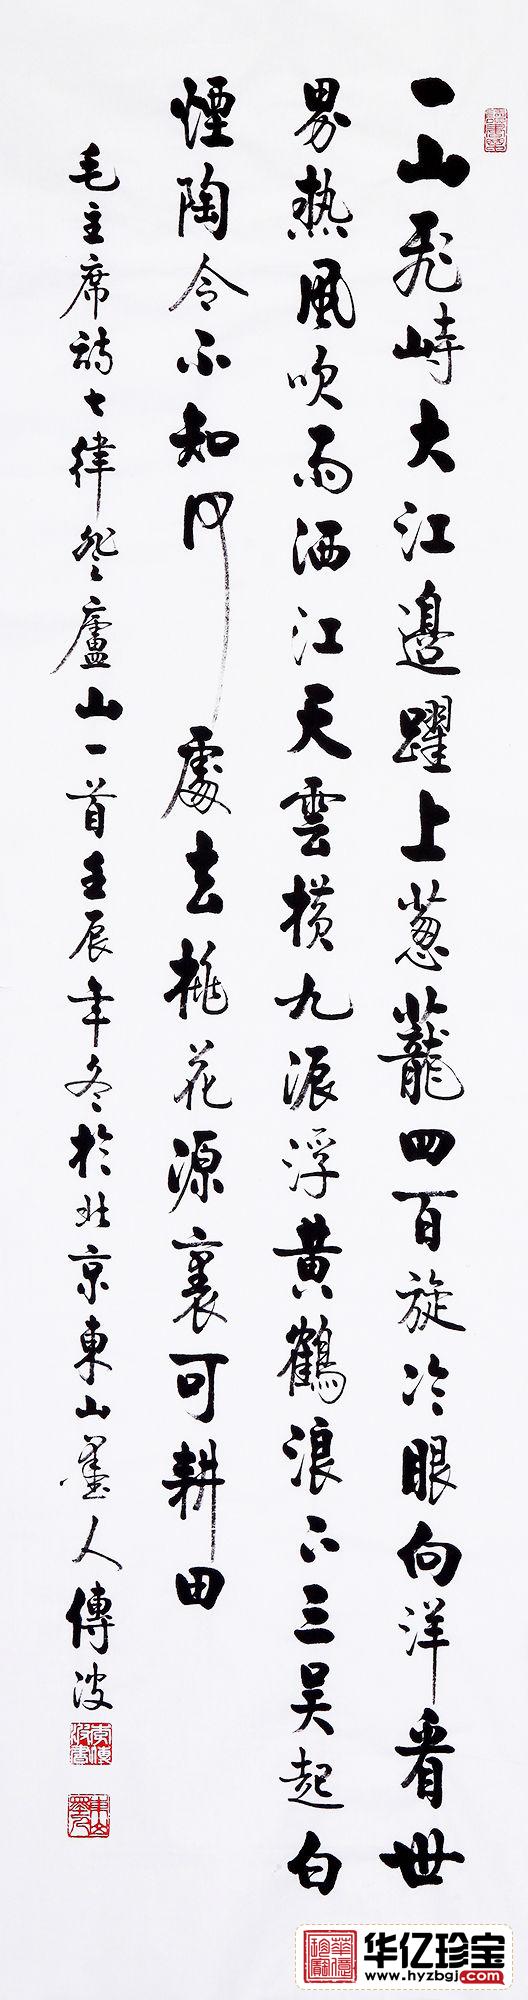 一山飛峙大江邊躍上葱蘢四百旋冷眼向洋看世
界熱風吹雨洒江天雲橫九派浮黄鶴浪下三吴起白
煙陶令不知何處去桃花源裏可耕田
毛主席詩七律登廬山一首壬辰年冬於北京東山墨人傳波
東山墨人
華億珍寶
华亿珍宝
www.hyzbgj.com